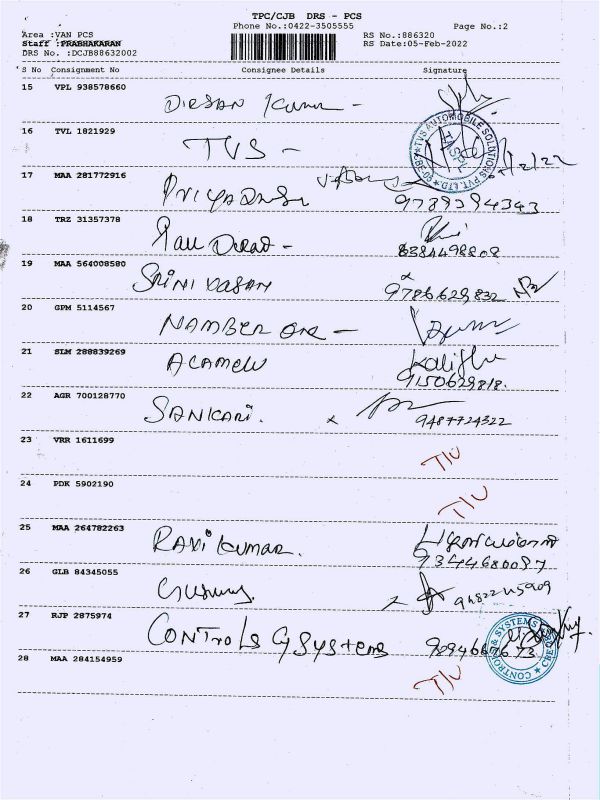 TPC/CJB DRS - PCS
Phone No.:0422-3505555 Page No.:2
Area :VAN PCS RS No.:886320
Staff :PRABHAKARAN RS Date:05-Feb-2022
DRS No. :DCJB88632002
S No Consignment No Consignee Details Signature
15 VPL 938578660
Kumar -
16 TVL 1821929
TVS -
TVS AUTOMOBILE SOLUTIONS PVT. LTD
17 MAA 281772916
9789394343
18 TRZ 31357378
8384498808
19 MAA 564008580
Srinivasan 9786629832
20 GPM 5114567
Namber one -
21 SLM 288839269
Alamelu
9150629818.
22 AGR 700128770
Sankari. x 9487724322
23 VRR 1611699
T/U
24 PDK 5902190
T/U
25 MAA 264782263
Ravi Kumar.
9344680097
26 GLB 84345055
x 9482245909
27 RJP 2875974
Controls & Systems 9094667673
CONTROLS & SYSTEMS
28 MAA 284154959
T/U